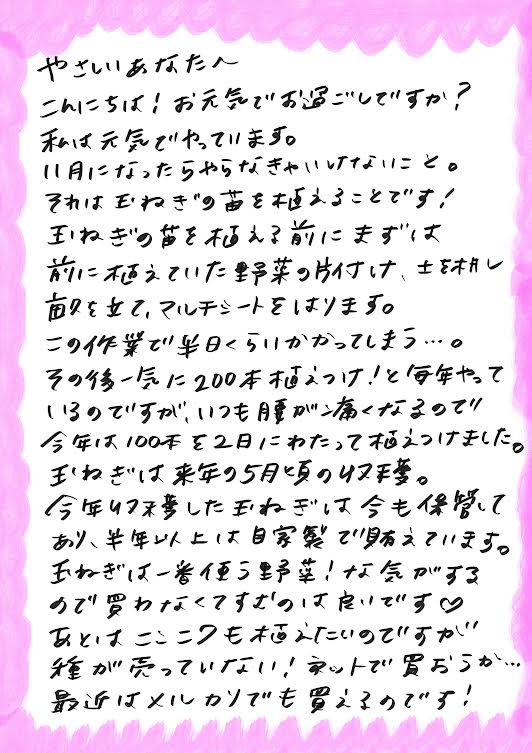 やさしいあなたへ
こんにちは！お元気でお過ごしですか？
私は元気でやっています。
11月になったらやらなきゃいけないこと。
それは玉ねぎの苗を植えることです！
玉ねぎの苗を植える前にまずは
前に植えていた野菜の片付け、土を耕し
畝を立て、マルチシートをはります。
この作業で半日くらいかかってしまう…。
その後一気に200本植えつけ！と毎年やって
いるのですが、いつも腰が痛くなるので
今年は100本を2日にわたって植えつけました。
玉ねぎは来年の5月頃の収穫。
今年収穫した玉ねぎは今も保管して
あり、半年以上は自家製で賄えています。
玉ねぎは一番使う野菜！な気がする
ので買わなくてすむのは良いです♡
あとはニンニクも植えたいのですが
種が売っていない！ネットで買おうか…
最近はメルカリでも買えるのです！